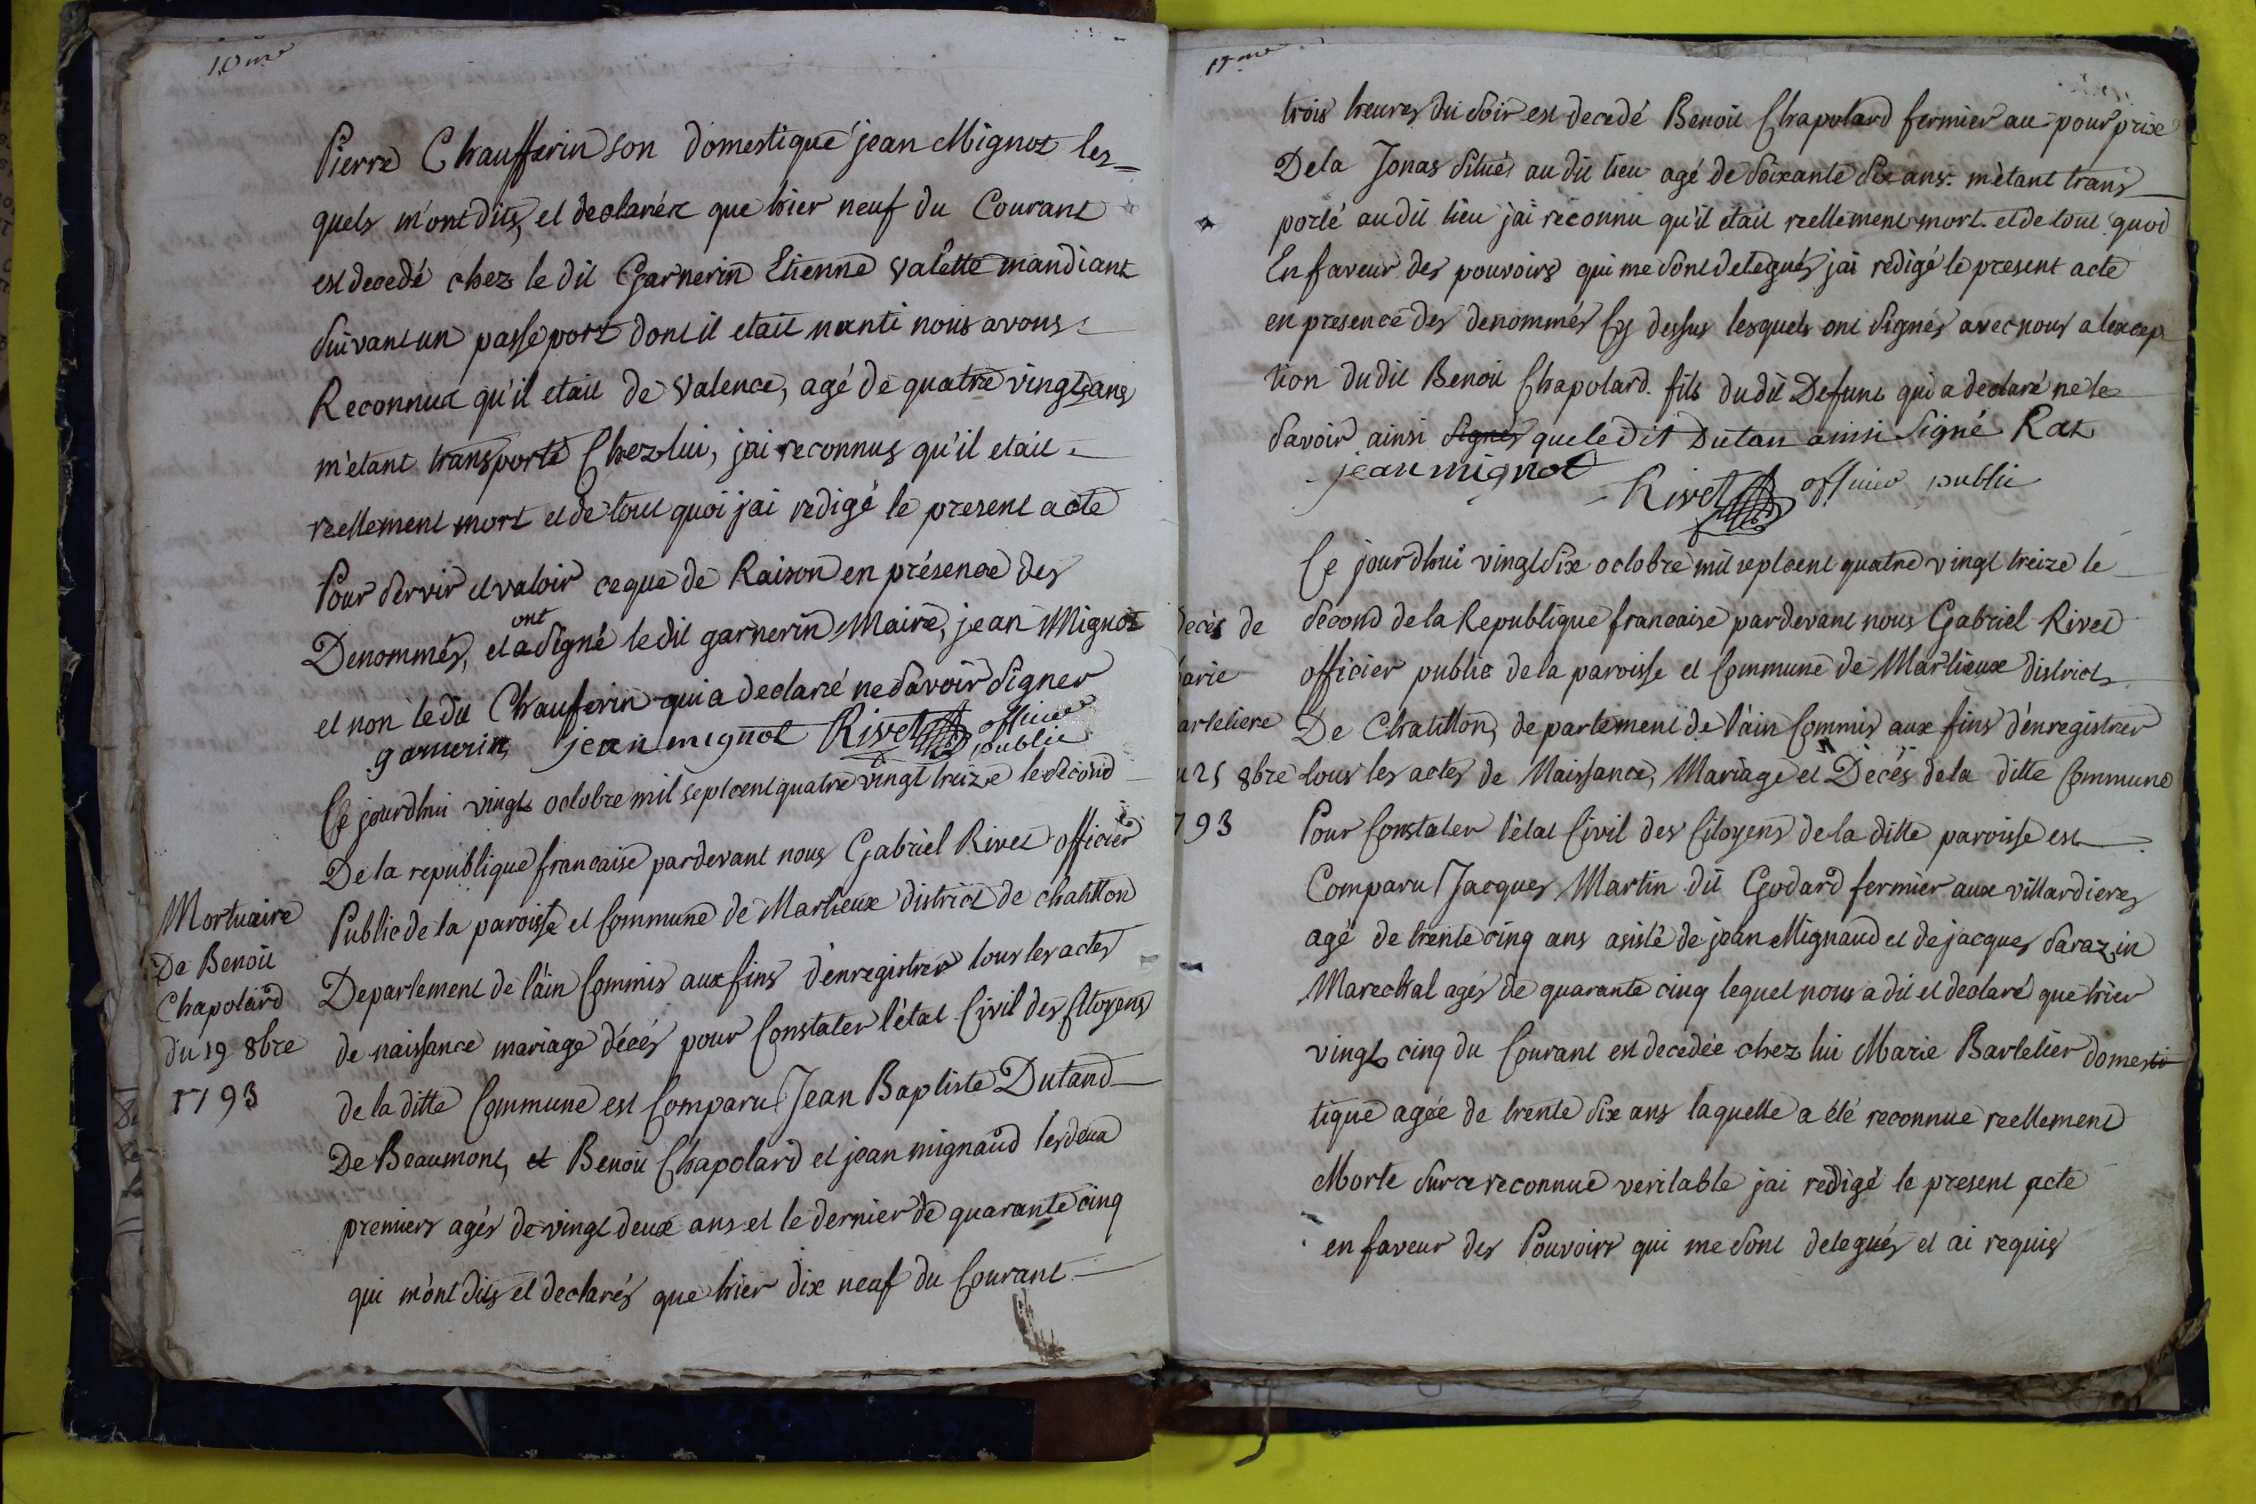 10me
Pierre Chaufferin son domestique jean Mignot les=
quels m'ont dits, et declarér que hier neuf du Courant
est decedé chez le dit Garnerin Etienne valette mandiant
suivant un passeport dont il etait nanti nous avons
Reconnux qu'il etait de valence, agé de quatre vingts ans
m'etant transporté Chez lui, jai reconnus qu'il etait
reellement mort et de tout quoi jai redigé le present acte
Pour servir et valoir ce que de Raison en présence des
ont
Denommés, et a signé le dit garnerin Maire, jean Mignot
et non le dit Chauferin qui a declaré ne savoir Signer
garnerin jean mignot Rivet officier
public
Ce jourdhui vingt octobre mil septcent quatre vingt treize le second
De la republique francaise pardevant nous Gabriel Rivet officier
Public de la paroisse et Commune de Marlieux district de chatitton
Departement de l'ain Commis aux fins d'enregistrer tous les actes
de naissance mariage décés pour Constater l'état Civil des Citoyens
de la ditte Commune est Comparu Jean Baptiste Dutand
De Beaumont, et Benoit Chapolard et jean mignaud les deux
premiers agés de vingt deux ans et le dernier de quarante cinq
qui m'ont dits et declarés que hier dix neuf du Courant
Mortuaire
De Benoit
Chapolard
du 19 8bre
1793
17me
trois heures du soir est decedé Benoit Chapolard fermier au pourprix
De la Jonas situés au dit lieu agé de soixante dix ans. m'étant trans
porté au dit lieu jai reconnu qu'il etait reellement mort et de tout quoi
En faveur des pouvoirs qui me sont delegués jai redigé le present acte
en presence des denommés Cy dessus lesquels ont signés avec nous a l'excep
tion du dit Benoit Chapolard fils du dit Defunt qui a declaré ne le
savoir ainsi signés que le dit Dutan ainsi Signé Rat
jean mignot
Rivet officier public
Ce jourdhui vingt six octobre mil septcent quatre vingt treize le
second de la Republique francaise pardevant nous Gabriel Rivet
officier public de la paroisse et Commune de Marlieux district
De Chatitton, departement de l'ain Commis aux fins d'enregistrer
tous les actes de Naissance, Mariage et Décés de la ditte Commune
Pour Constater l'état Civil des Citoyens de la ditte paroisse est
Comparu Jacques Martin dit Godard fermier aux villardieres
agé de trente cinq ans asisté de jean Mignaud et de jacques Sarazin
Marechal agés de quarante cinq lequel nous a dit et declaré que hier
vingt cinq du Courant est decedée chez lui Marie Bartelier domesti
tique agée de trente six ans laquelle a été reconnue reellement
Morte sur ce reconnue veritable jai redigé le present acte
en faveur des Pouvoirs qui me sont delegués et ai requis
decés de
arie
arteliere
u 25 8bre
793